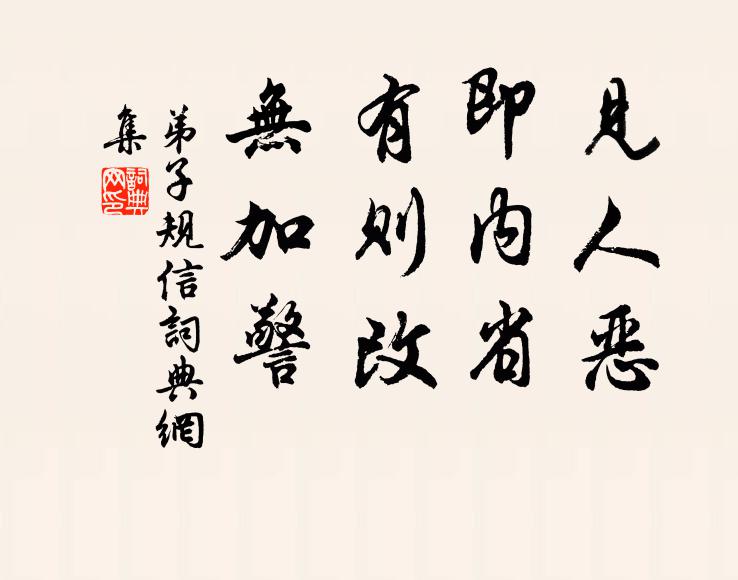 見人惡
即內省
有則改
無加警
弟子規信詞典網
集
詞典
网印